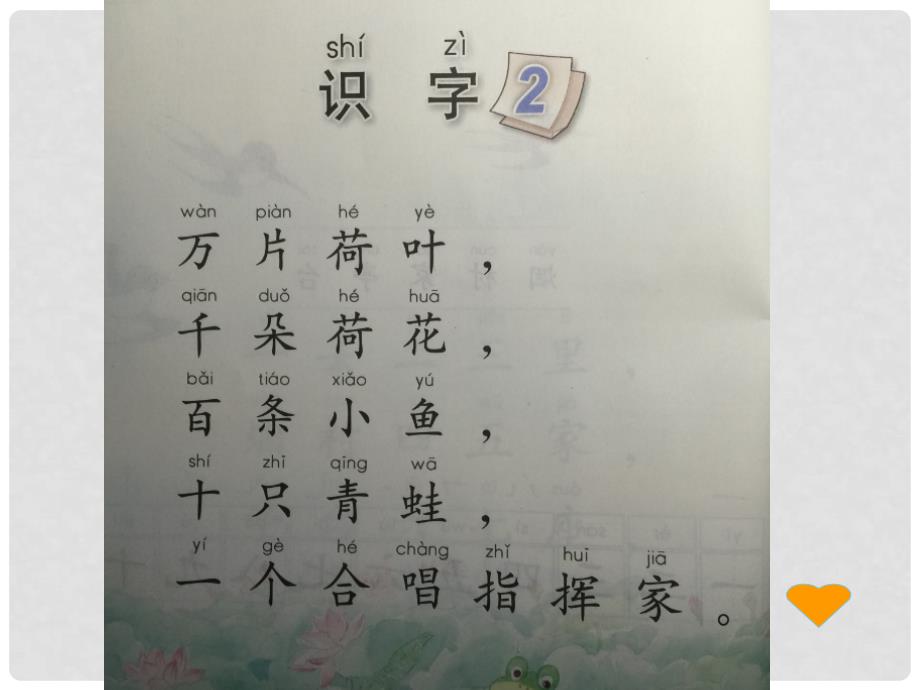 shí zì
识 字 2
wàn piàn hé yè
万 片 荷 叶 ，
qiān duǒ hé huā
千 朵 荷 花 ，
bǎi tiáo xiǎo yú
百 条 小 鱼 ，
shí zhī qīng wā
十 只 青 蛙 ，
yí gè hé chàng zhǐ huī jiā
一 个 合 唱 指 挥 家 。